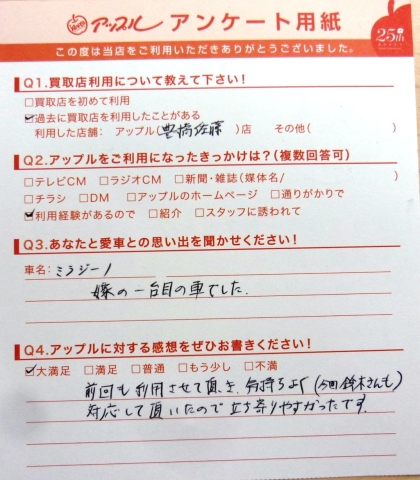 アップル アンケート用紙
25th
この度は当店をご利用いただきありがとうございました。
Q1.買取店利用について教えて下さい！
□買取店を初めて利用
☑過去に買取店を利用したことがある
利用した店舗： アップル(豊橋佐藤)店 その他( )
Q2.アップルをご利用になったきっかけは？(複数回答可)
□テレビCM □ラジオCM □新聞・雑誌(媒体名/ )
□チラシ □DM □アップルのホームページ □通りがかりで
☑利用経験があるので □紹介 □スタッフに誘われて
Q3.あなたと愛車との思い出を聞かせてください！
車名：ミラジーノ
嫁の一台目の車でした.
Q4.アップルに対する感想をぜひお書きください！
☑大満足 □満足 □普通 □もう少し □不満
前回も利用させて頂き、気持ちよく(今回鈴木さんも)
対応して頂いたので立ち寄りやすかったです.